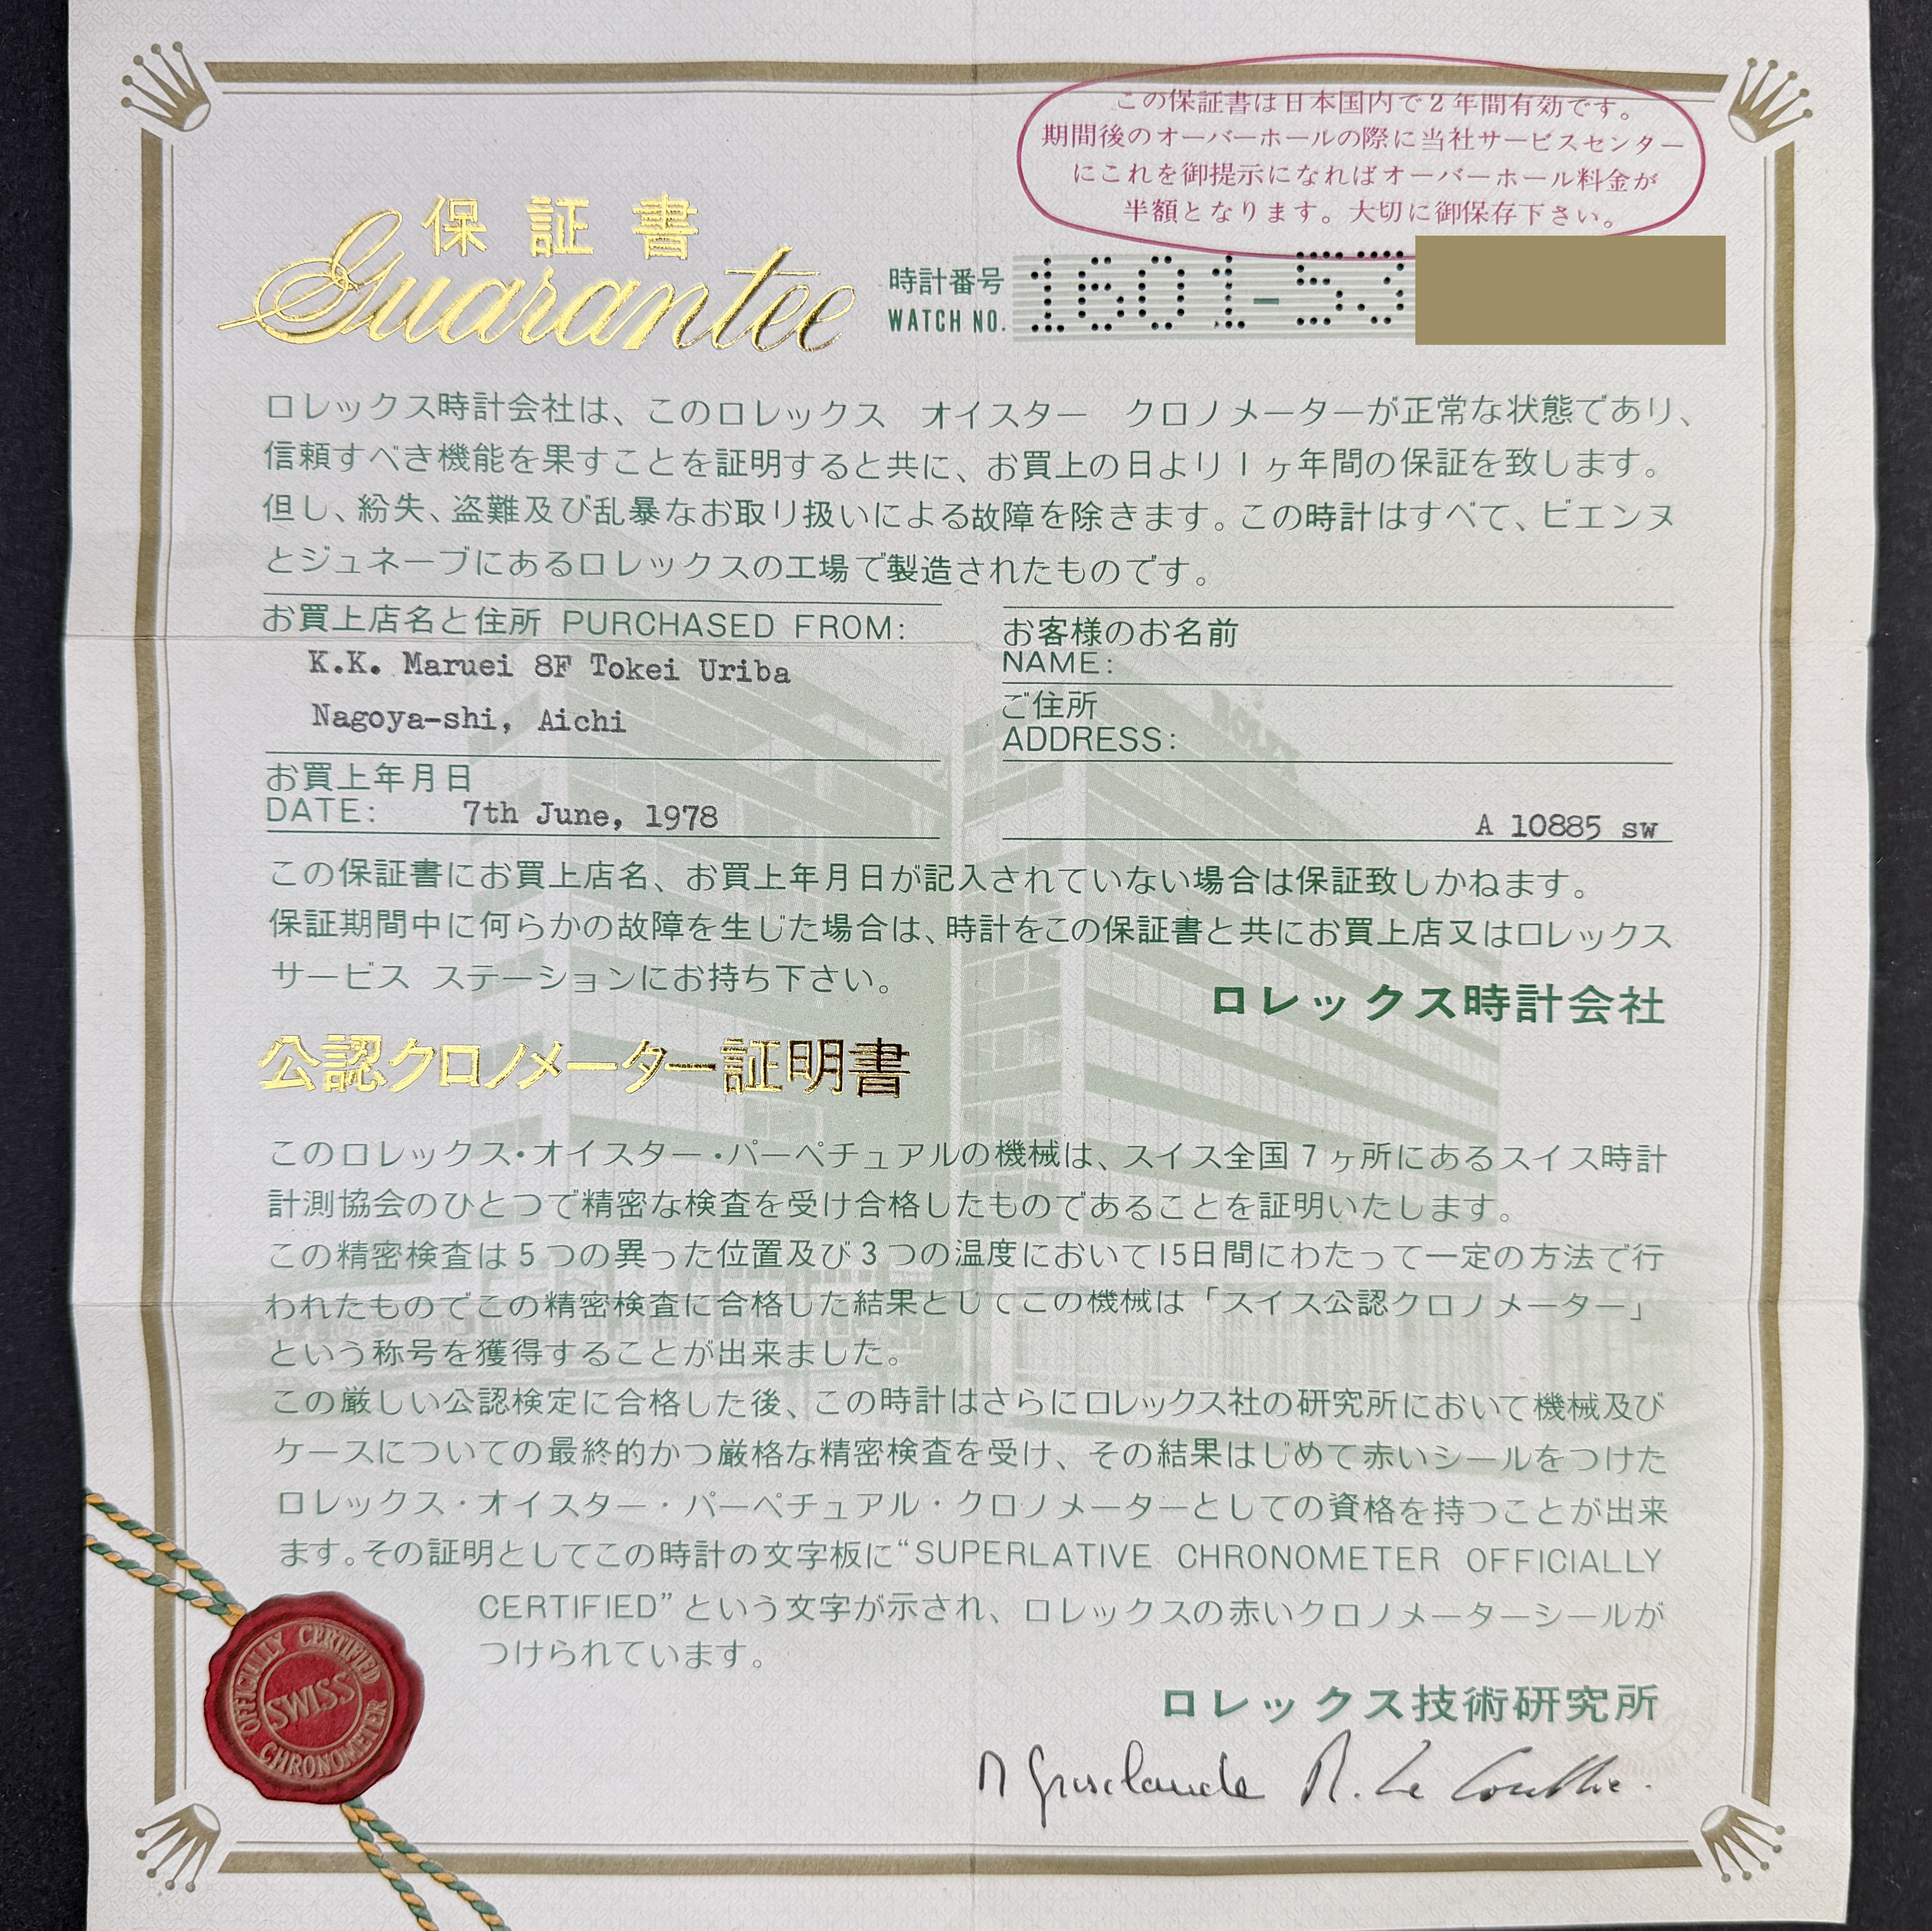 この保証書は日本国内で2年間有効です。
期間後のオーバーホールの際に当社サービスセンター
にこれを御提示になればオーバーホール料金が
半額となります。大切に御保存下さい。
保証書
Guarantee
時計番号
WATCH NO.
1601-53
ロレックス時計会社は、このロレックス オイスター クロノメーターが正常な状態であり、
信頼すべき機能を果すことを証明すると共に、お買上の日より1ヶ年間の保証を致します。
但し、紛失、盗難及び乱暴なお取り扱いによる故障を除きます。この時計はすべて、ビエンヌ
とジュネーブにあるロレックスの工場で製造されたものです。
お買上店名と住所 PURCHASED FROM:
K.K. Maruei 8F Tokei Uriba
Nagoya-shi, Aichi
お客様のお名前
NAME:
ご住所
ADDRESS:
お買上年月日
DATE: 7th June, 1978
A 10885 sw
この保証書にお買上店名、お買上年月日が記入されていない場合は保証致しかねます。
保証期間中に何らかの故障を生じた場合は、時計をこの保証書と共にお買上店又はロレックス
サービス ステーションにお持ち下さい。
ロレックス時計会社
公認クロノメーター証明書
このロレックス・オイスター・パーペチュアルの機械は、スイス全国7ヶ所にあるスイス時計
計測協会のひとつで精密な検査を受け合格したものであることを証明いたします。
この精密検査は5つの異った位置及び3つの温度において15日間にわたって一定の方法で行
われたものでこの精密検査に合格した結果としてこの機械は「スイス公認クロノメーター」
という称号を獲得することが出来ました。
この厳しい公認検定に合格した後、この時計はさらにロレックス社の研究所において機械及び
ケースについての最終的かつ厳格な精密検査を受け、その結果はじめて赤いシールをつけた
ロレックス・オイスター・パーペチュアル・クロノメーターとしての資格を持つことが出来
ます。その証明としてこの時計の文字板に“SUPERLATIVE CHRONOMETER OFFICIALLY
CERTIFIED”という文字が示され、ロレックスの赤いクロノメーターシールが
つけられています。
OFFICIALLY CERTIFIED
SWISS
CHRONOMETER
ロレックス技術研究所